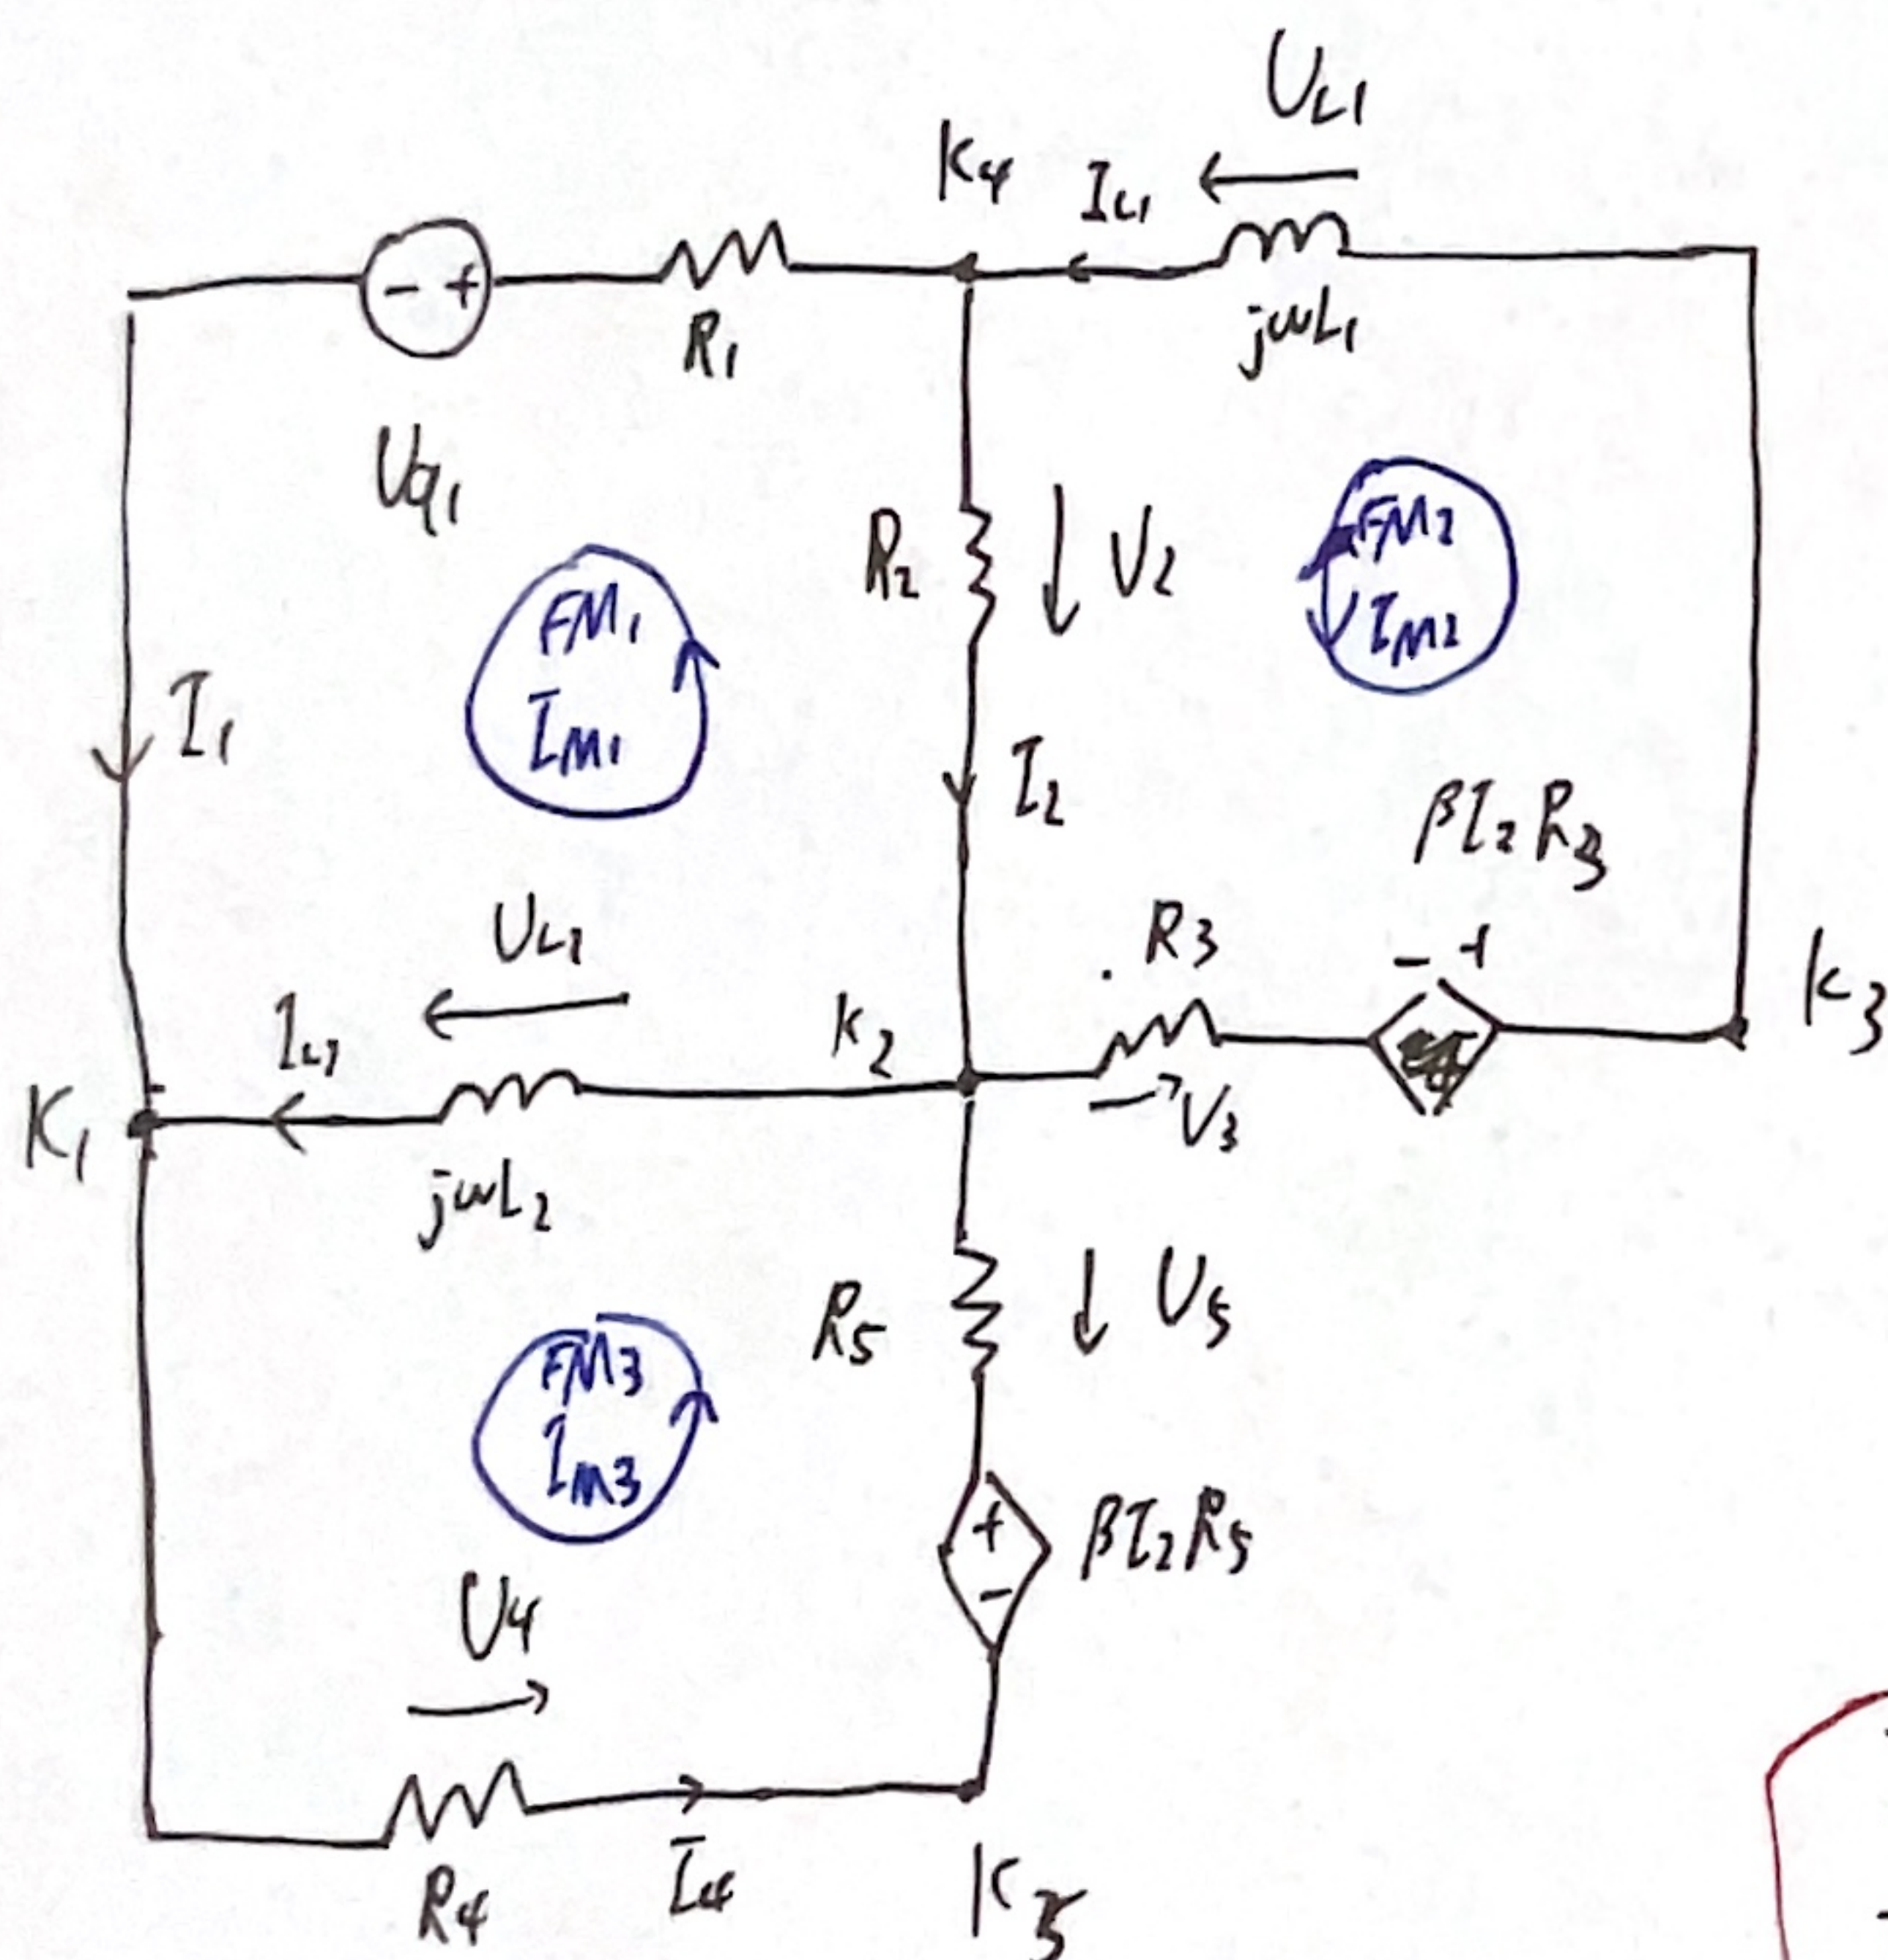 UL1
K4
IL1
- +
R1
jωL1
Uq1
R2
U2
FM2
IM2
FM1
IM1
I1
I2
βI2R3
UL2
R3
- +
K3
IL2
K2
U3
K1
jωL2
R5
U5
FM3
IM3
+
-
βI2R5
U4
R4
I4
K5